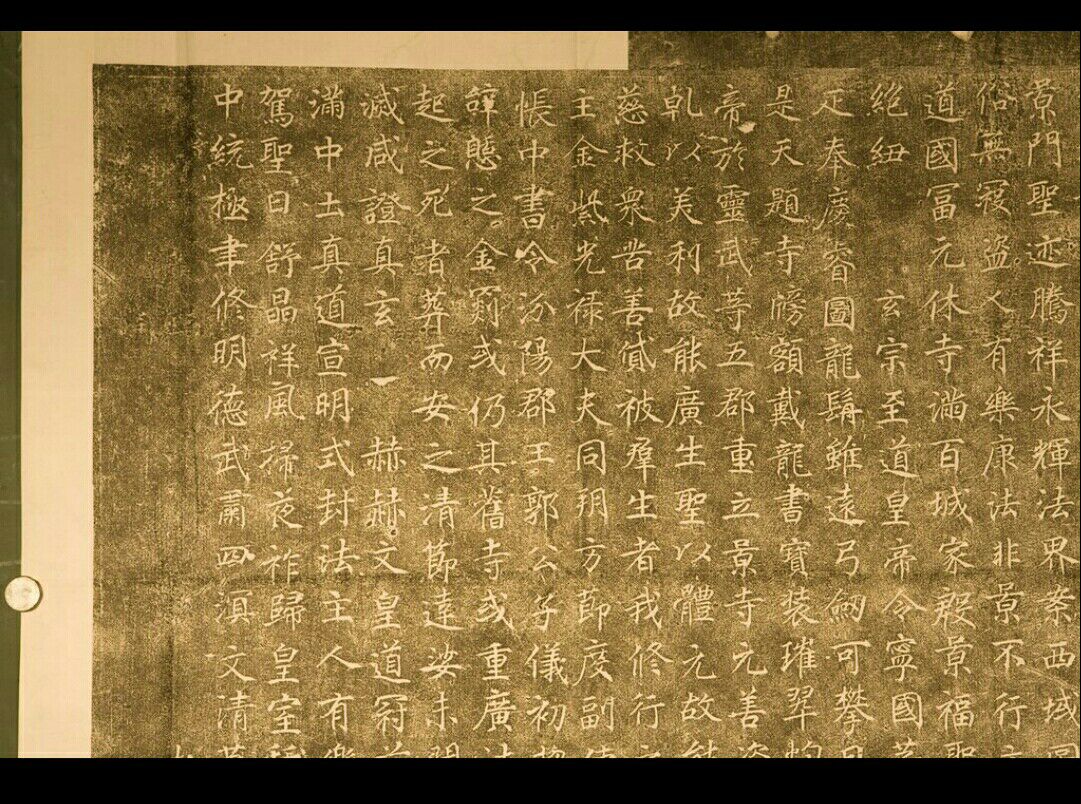 景門聖迹騰祥永輝法界案西域
俗無寇盜人有樂康法非景不行
道國冨元休寺滿百城家殷景福聖
絕紐 玄宗至道皇帝令寧國
疋奉慶睿圖龍髯雖遠弓劒可攀日
是天題寺牓額戴龍書寶裝璀翠灼
帝於靈武等五郡重立景寺元善資
乹以美利故能廣生聖以體元故能
慈救衆苦善貸被羣生者我修行之
主金紫光祿大夫同朔方節度副使
帳中書令汾陽郡王郭公子儀初
辝憩之金罽或仍其舊寺或重廣法
起之死者葬而安之清節達娑未聞
滅咸證真玄 赫赫文皇道冠前
滿中土真道宣明式封法主人有樂
駕聖日舒晶祥風掃夜祚歸皇室
中統極聿修明德武肅四溟文清萬